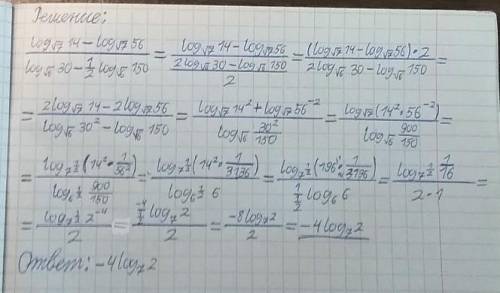 Решение:
(log_√7 14 − log_√7 56)/(log_√6 30 − ½ log_√6 150) = (log_√7 14 − log_√7 56)/((2log_√6 30 − log_√6 150)/2) = ((log_√7 14 − log_√7 56)·2)/(2log_√6 30 − log_√6 150) =
= (2log_√7 14 − 2log_√7 56)/(log_√6 30² − log_√6 150) = (log_√7 14² + log_√7 56⁻²)/(log_√6 30²/150) = (log_√7 (14²·56⁻²))/(log_√6 900/150) =
= (log_7^½ (14²·1/56²))/(log_6^½ 900/150) = (log_7^½ (14²·1/3136))/(log_6^½ 6) = (log_7^½ (196·1/3136))/(1/½ log_6 6) = (log_7^½ 1/16)/(2·1) =
= (log_7^½ 2⁻⁴)/2 = (−4/½ log_7 2)/2 = (−8log_7 2)/2 = −4log_7 2
Ответ: −4log_7 2